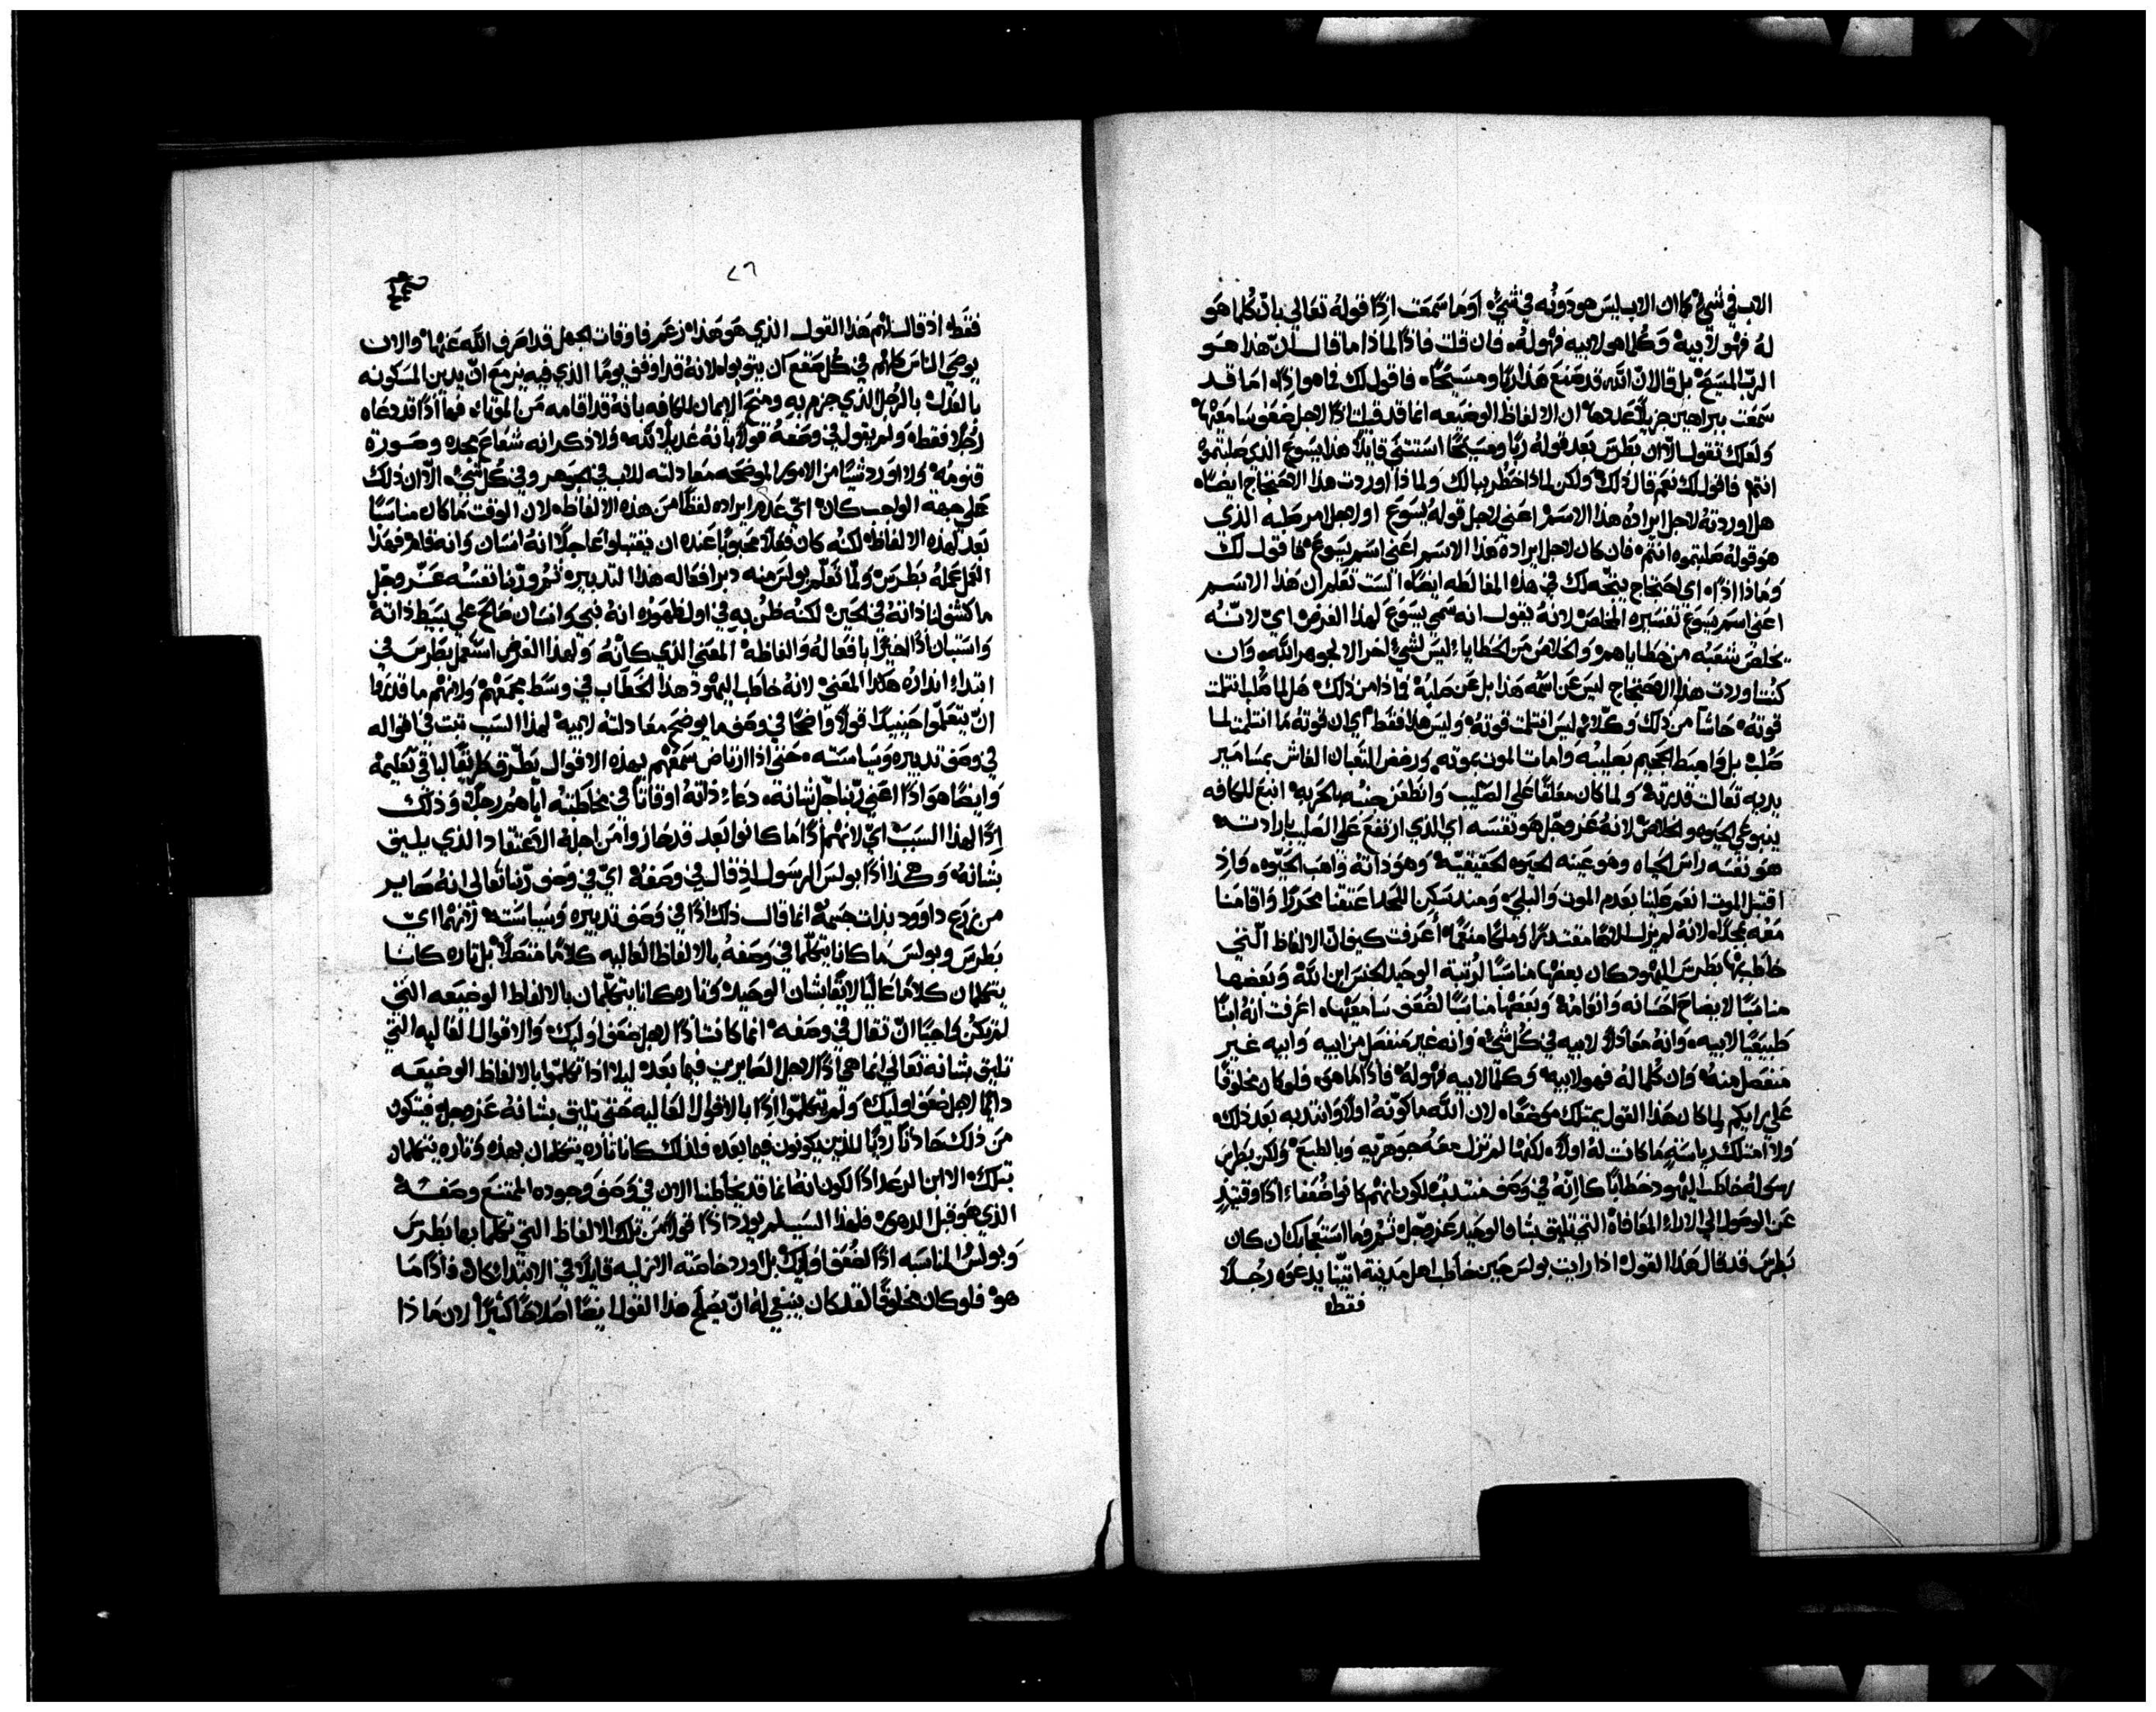 الاب في شيءٍ كما ان الاب ليس هو دونه في شيءٍ أوما سمعت اذًا قوله تعالى بانّ كلما هو
له فهو لابيه وكلما هو لابيه فهو له فان قلت فاذًا لماذا ما قال انّ هذا هو
الرب المسيح بل قال انّ الله قد صنع هذا ربًا ومسيحًا فاقول لك فما هو اذًا اما قد
سمعت ببراهين جزيلٌ عددها ان الالفاظ الوضيعه انما قد قيلت اذًا لاجل ضعف سامعيها
ولعلك تقول الّا ان بطرس بعد قوله ربًا ومسيحًا استثنى قايلاً هذا يسوع الذي صلبتموه
انتم فاقول لك نعم قال ذلك ولكن لماذا خطر ببالك ولماذا اوردت هذا الاحتجاج ايضًا
هل اوردته لاجل ايراده هذا الاسم اعني لاجل قوله يسوع او لاجل امر صلبه الذي
هو قوله صلبتموه انتم فان كان لاجل ايراده هذا الاسم اعني اسم يسوع فاقول لك
وماذا اذًا اي احتجاج يتجه لك في هذه المغالطه ايضًا الست تعلم ان هذا الاسم
اعني اسم يسوع تفسيره المخلص لانه يقول انه سمي يسوع لهذا الغرض اي لانّه
يخلص شعبه من خطاياهم والخلاص من الخطايا ليس لشيءٍ اخر الا لجوهر الله وان
كنت اوردت هذا الاحتجاج ليس عن اسمه هذا بل عن صلبه فماذا من ذلك هل لما صُلب انثلمت
قوته حاشا من ذلك وكلّا ليس انثلمت قوته وليس هذا فقط اي ان قوته ما انثلمت لما
صُلب بل واهبط الجحيم بصليبه وامات الموت بموته ورفض الثعبان الغاش بمسامير
يديه تعالت قدرته ولما كان معلقًا على الصليب وانطعن جنبه بالحربه انبع للكافه
ينبوعي الحيوه والخلاص لانه عز وجل هو نفسه اي الذي ارتفع على الصليب بارادته
هو نفسه راس الحياه وهو عينه الحيوه الحقيقيّه وهو ذاته واهب الحيّوه واذ
اقتبل الموت انعم علينا بعدم الموت والبلى وعند سكن اللحد اعتقنا محررًا واقامنا
معه مجدًا لانه لم يزل الاهًا مقتدرًا وملكًا منعمًا أعرفت كيف انّ الالفاظ الّتي
خاطب بها بطرس اليهود كان بعضها مناسبًا لرتبة الوحيد الجنس ابن الله وبعضها
مناسبًا لايضاح احسانه وانعامه وبعضها مناسبًا لضعف سامعيها اعرفت انه ابنًا
طبيعيًا لابيه وانه معادلٌ لابيه في كل شيءٍ وانه غير منفصل من ابيه وابيه غير
منفصل منه وان كلما له فهو لابيه وكلما لابيه فهو له فاذًا ما هو فلو كان مخلوقًا
على رايكم لما كان هذا القول يمتلك موضعًا لان الله ما كوّنه اولًا وانتدبه بعد ذلك
ولا امتلك رياسةٍ ما كانت له اولاً لكنها لم تزل معه جوهريه وبالطبع ولكن بطرس
رسوله خاطب اليهود خطابًا كانّه في وصف منتدب لكون انهم كانوا ضعفاء اذًا وقتيذٍ
عن الوصول الى الاراء المعافاة التي تليق بشان الوحيد عز وجل ثم وما استعجابك ان كان
بطرس قد قال هذا القول اذا رايت بولس حين خاطب اهل مدينة اتينا يدعوه رجلاً
فقط
٧٦
فقط اذ قال لهم هذا القول الذي هو هذا زعم فاوقات الجهل قد اصرف الله عنها والان
يوصي الناس كلهم في كل صقع ان يتوبوا لانه قد اوقف يومًا الذي فيه يزمع انّ يدين المسكونه
بالعدل بالرجل الذي جزم به ومنح الايمان للكافه بانه قد اقامه من الموتى فها أذًا قد دعاه
رجلا فقط ولم يقول في وصفه قولًا بانه عديلٌ لله ولا ذكر انه شعاع مجده وصورة
قنومه ولا اورد شيًا من الامور الموضحه معادلته للاب في الجوهر وفي كل شيء الّا ان ذلك
على جهة الواجب كان اي عدم ايراده لفظًا من هذه الالفاظ لان الوقت ما كان مناسبًا
بعد لهذه الالفاظ لكنه كان فعلاً محبوبًا عنده ان يقتبلوا عاجلاً انه انسان وانه قام فهذا
الفعل عمله بطرس ولمّا تعلّم بولس منه دبر افعاله هذا التدبير ثم وربّنا نفسه عز وجل
ما كشف لنا ذاته في الحين لكنه ظُن به في اول ظهوره انه نبي وانسان صالح على بسيط ذاته
واستبان اذًا اخيرًا بافعاله والفاظه المعنى الذي كانه ولهذا الغرض استعمل بطرس في
ابتداء انذاره هكذا المعنى لانه خاطب اليهود هذا الخطاب في وسط مجمعهم ولانهم ما قدروا
انّ يتعلّموا حينيذٍ قولاً واضحًا في وصف ما يوضح معادلته لابيه لهذا السبب ثبت في اقواله
في وصف تدبيره وسياسته حتى اذا ارتاض سمعهم بهذه الاقوال تطرّق طريقًا لباقي تعليمه
وايضًا هو اذًا اعني ربّنا جل شانه دعاء ذاته اوقاتًا في مخاطبته اياهم رجلٌ وذلك
اذًا لهذا السبب اي لانهم أذًا ما كانوا بعد قد حازوا من اجله الاعتقاد الذي يليق
بشانه وهكذا اذًا بولس الرسول اذ قال في وصفه اي في وصف ربّنا تعالى انه صاير
من زرع داوود بذات جسمه انما قال ذلك اذًا في وصف تدبيره وسياسته لانهما اي
بطرس وبولس ما كانا يتكلّما في وصفه بالالفاظ العاليه كلامًا متصلاً بل تاره كانا
يتكلمان كلامًا عاليًا لايقًا بشان الوحيد وتاره كانا يتكلّمان بالالفاظ الوضيعه التي
لم تكن واجبًا انّ تقال في وصفه انما كانت أذًا لاجل ضعف اوليك والاقوال العاليه التي
تليق بشانه تعالى انما هي اذًا لاجل الصايرين فيما بعد ليلا اذا تكلّموا بالالفاظ الوضيعه
دايمًا لاجل ضعف اوليك ولم يتكلّموا اذًا بالاقوال العاليه حتى تليق بشانه عز وجل فيتكون
من ذلك حادثًا رديًا للذين يكونون فيما بعد فلذلك كانا تاره يتكلمان بهذه وتاره يتكلمان
بتلك الا ابن الرعد اذًا لكون انه انما قد يخاطبنا الان في وصف وجوده الممتنع وصفه
الذي هو قبل الدهور فلهذا السبب لم يورد اذًا قولًا من تلك الالفاظ التي تكلما بها بطرس
وبولس المناسبه اذًا لضعف اوليك بل اورد خاصّته الازليه قايلاً في الابتداء كان فأذًا ما
هو فلو كان مخلوقًا لقد كان ينبغي له انّ يصلح هذا القول ايضًا اصلاحًا كثيرًا لان ماذا